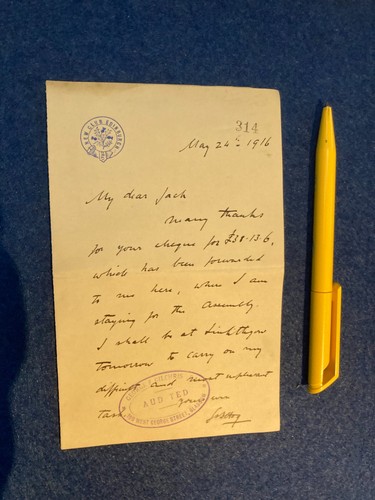 NEW CLUB EDINBURGH
314
May 24th 1916
My dear Jack
Many thanks
for your cheque for £38-13-6,
which has been forwarded
to me here, where I am
staying for the Assembly.
I shall be at Linlithgow
tomorrow to carry on my
difficult and most unpleasant
task yours
AUDITED
WEST GEORGE STREET,